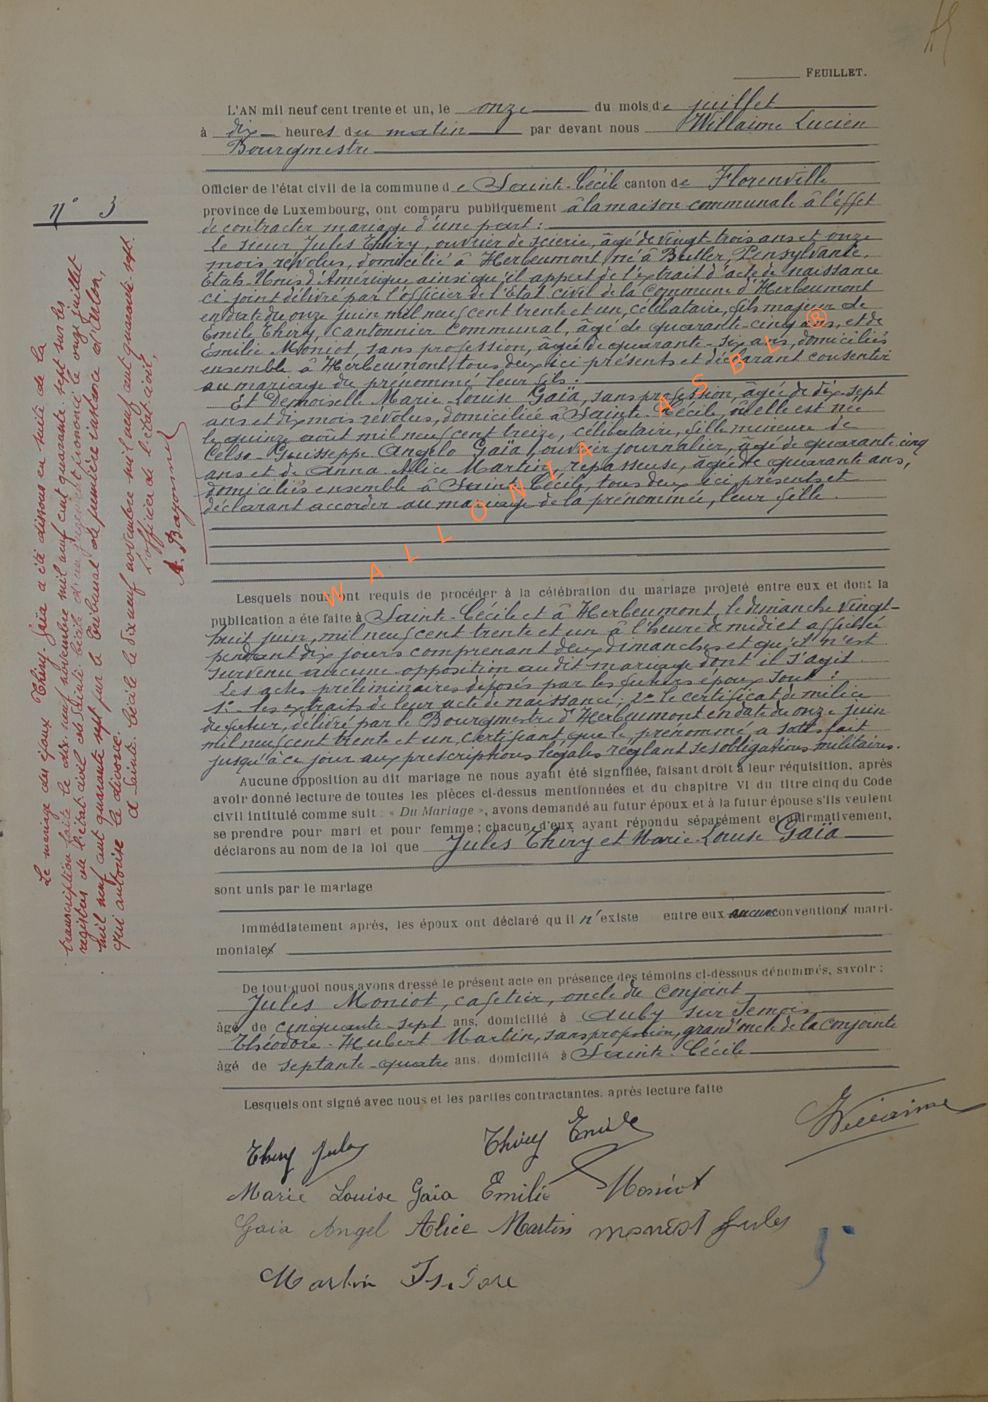 FEUILLET.
L'AN mil neuf cent trente et un, le onze du mois de juillet
à dix heures du matin par devant nous Willaime Lucien
Bourgmestre
Officier de l'état civil de la commune de Sainte-Cécile canton de Florenville
province de Luxembourg, ont comparu publiquement à la maison communale à l'effet
de contracter mariage d'une part :
Le sieur Jules Thiry, ouvrier de scierie, âgé de vingt-trois ans et onze
mois révolus, domicilié à Herbeumont, né à Butler, Pensylvanie,
États-Unis d'Amérique ainsi qu'il appert de l'extrait d'acte de naissance
ci joint délivré par l'officier de l'Etat civil de la Commune d'Herbeumont
en date du onze juin mil neuf cent trente et un, célibataire, fils majeur de
Emile Thiry, cantonnier communal, âgé de quarante-cinq ans, et de
Emilie Moniot, sans profession, âgée de quarante-six ans, domiciliés
ensemble à Herbeumont, tous deux ici présents et déclarant consentir
au mariage du prénommé leur fils :
Et Demoiselle Marie-Louise Gaïa, sans profession, âgée de dix-sept
ans et dix mois révolus, domiciliée à Sainte-Cécile, où elle est née
le quinze août mil neuf cent treize, célibataire, fille mineure de
Celso-Guiseppe Angelo Gaïa, ouvrier journalier, âgé de quarante cinq
ans et de Anna Alice Martin, repasseuse, âgée de quarante ans,
domiciliés ensemble à Sainte-Cécile, tous deux ici présents et
déclarant accorder au mariage de la prénommée, leur fille.
Lesquels nous ont requis de procéder à la célébration du mariage projeté entre eux et dont la
publication a été faite à Sainte-Cécile et à Herbeumont, le dimanche vingt-
huit juin, mil neuf cent trente et un à l'heure de midi et affichée
pendant dix jours comprenant deux dimanches et qu'il n'est
survenu aucune opposition au dit mariage dont il s'agit.
Les actes préliminaires déposés par les futurs époux sont :
1° les extraits de leur acte de naissance. 2° le certificat de milice
du futur, délivré par le Bourgmestre d'Herbeumont en date du onze juin
mil neuf cent trente et un, certifiant que le prénommé a satisfait
jusqu'à ce jour aux prescriptions légales réglant ses obligations militaires.
Aucune opposition au dit mariage ne nous ayant été signifiée, faisant droit à leur réquisition, après
avoir donné lecture de toutes les pièces ci-dessus mentionnées et du chapitre VI du titre cinq du Code
civil intitulé comme suit : « Du Mariage », avons demandé au futur époux et à la future épouse s'ils veulent
se prendre pour mari et pour femme ; chacun d'eux ayant répondu séparément et affirmativement,
déclarons au nom de la loi que Jules Thiry et Marie-Louise Gaïa
sont unis par le mariage
Immédiatement après, les époux ont déclaré qu'il n'existe entre eux aucune conventions matri-
moniales
De tout quoi nous avons dressé le présent acte en présence des témoins ci-dessous dénommés, savoir :
Jules Moniot, cafetier, oncle du conjoint
âgé de cinquante-sept ans, domicilié à Auby sur Semois
Théodore-Hubert Martin, sans profession, grand'oncle de la conjointe
âgé de septante-quatre ans, domicilié à Sainte-Cécile
Lesquels ont signé avec nous et les parties contractantes, après lecture faite
Thiry Jules Thiry Emile Willaime
Marie Louise Gaïa Emilie Moniot
Gaia Angel Alice Martin moniot Jules
Martin Isidore
5
n° 3
Le mariage des époux Thiry-Gaïa a été dissous en suite de la
transcription faite le dix neuf novembre mil neuf cent quarante sept sur les
registres de l'état civil de Sainte-Cécile d'un jugement prononcé le onze juillet
mil neuf cent quarante sept par le tribunal de première instance d'Arlon,
qui autorise le divorce.
A Sainte-Cécile le dix neuf novembre mil neuf cent quarante sept.
L'officier de l'état civil,
WALLONIA ASBL ®